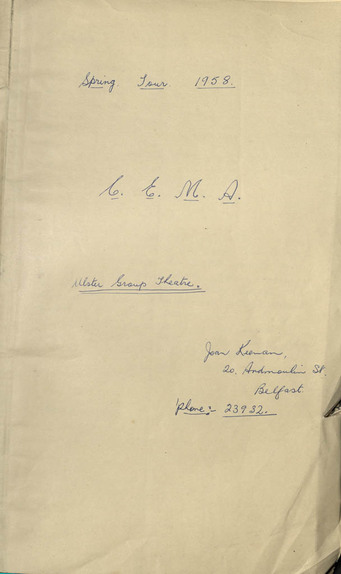 Spring Tour 1958.
C. E. M. A.
Ulster Group Theatre.
Joan Keenan,
20, Andmoulin St.
Belfast.
Phone:- 23932.